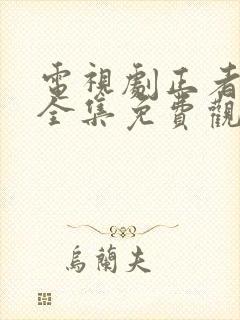 電視劇正者
全集免費觀
烏蘭夫